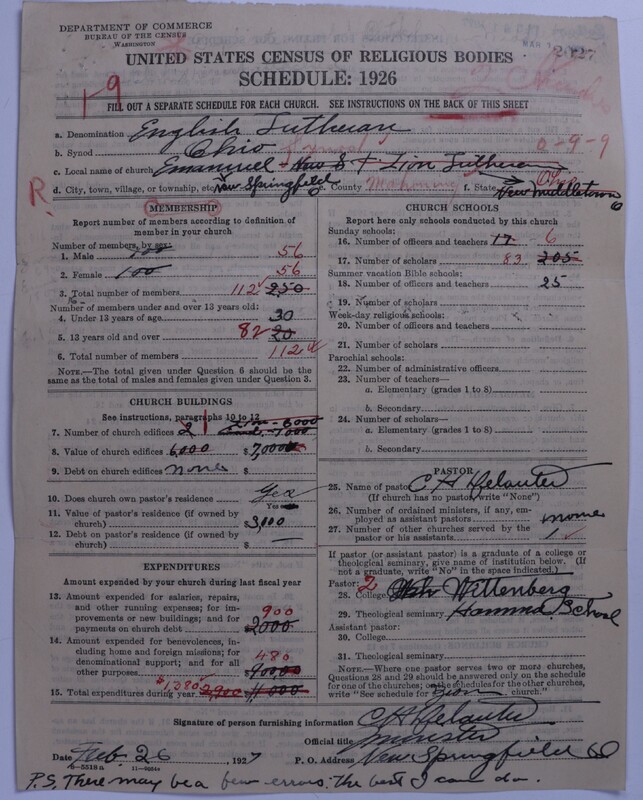 DEPARTMENT OF COMMERCE
BUREAU OF THE CENSUS
WASHINGTON
MAR 2027
UNITED STATES CENSUS OF RELIGIOUS BODIES
SCHEDULE: 1926
1-9
FILL OUT A SEPARATE SCHEDULE FOR EACH CHURCH. SEE INSTRUCTIONS ON THE BACK OF THIS SHEET
a. Denomination English Lutheran
b. Synod Ohio 0-9-9
c. Local name of church Emanuel Zion Lutheran
d. City, town, village, or township, etc. New Springfield e. County Mahoning f. State Ohio New Middletown O
R
MEMBERSHIP
Report number of members according to definition of member in your church
Number of members, by sex
1. Male 100 56
2. Female 100 56
3. Total number of members 112 250
Number of members under and over 13 years old:
4. Under 13 years of age 30
5. 13 years old and over 82 20
6. Total number of members 112
NOTE.—The total given under Question 6 should be the same as the total of males and females given under Question 3.
CHURCH BUILDINGS
See instructions, paragraphs 10 to 12
7. Number of church edifices 2 1 Zion-6000
8. Value of church edifices 6,000 $7,000
9. Debt on church edifices None $
10. Does church own pastor's residence Yes
Yes
11. Value of pastor's residence (if owned by church) $3,000
12. Debt on pastor's residence (if owned by church) $ —
EXPENDITURES
Amount expended by your church during last fiscal year
13. Amount expended for salaries, repairs, and other running expenses; for improvements or new buildings; and for payments on church debt 900 $2000
14. Amount expended for benevolences, including home and foreign missions; for denominational support; and for all other purposes 480
15. Total expenditures during year $1380 2900
CHURCH SCHOOLS
Report here only schools conducted by this church
Sunday schools:
16. Number of officers and teachers 17 6
17. Number of scholars 83 205
Summer vacation Bible schools:
18. Number of officers and teachers 25
19. Number of scholars
Week-day religious schools:
20. Number of officers and teachers
21. Number of scholars
Parochial schools:
22. Number of administrative officers
23. Number of teachers—
a. Elementary (grades 1 to 8)
b. Secondary
24. Number of scholars—
a. Elementary (grades 1 to 8)
b. Secondary
PASTOR
25. Name of pastor C H
(If church has no pastor, write "None")
26. Number of ordained ministers, if any, employed as assistant pastors none
27. Number of other churches served by the pastor or his assistants 1
If pastor (or assistant pastor) is a graduate of a college or theological seminary, give name of institution below. (If not a graduate, write "No" in the space indicated.)
Pastor: 2
28. College Wittenberg
29. Theological seminary Hamma School
Assistant pastor:
30. College
31. Theological seminary
NOTE.—Where one pastor serves two or more churches, Questions 28 and 29 should be answered only on the schedule for one of the churches; on the schedules for the other churches, write "See schedule for Zion church."
Signature of person furnishing information C H
Official title Minister
Date Feb. 26, 1927 P. O. Address New Springfield O
8-5518a
P.S. There may be a few errors. The best I can do.